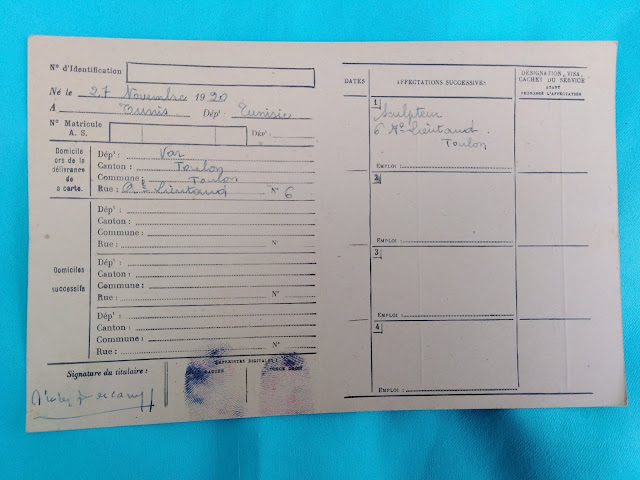 N° d'Identification
Né le 27 Novembre 1920
A Tunis Dépt Tunisie
N° Matricule A. S. Dépt
Domicile
ors de la
délivrance
de
a carte.
Dépt : Var
Canton : Toulon
Commune : Toulon
Rue : Lieutaud N° 6
Domiciles
successifs
Dépt :
Canton :
Commune :
Rue : N°
Dépt :
Canton :
Commune :
Rue : N°
Dépt :
Canton :
Commune :
Rue : N°
Signature du titulaire :
EMPREINTES DIGITALES
DATES
AFFECTATIONS SUCCESSIVES
DÉSIGNATION, VISA,
CACHET DU SERVICE
AYANT
PRONONCÉ L'AFFECTATION
1
Sculpteur
6 Lieutaud.
Toulon
EMPLOI :
2
EMPLOI :
3
EMPLOI :
4
EMPLOI :